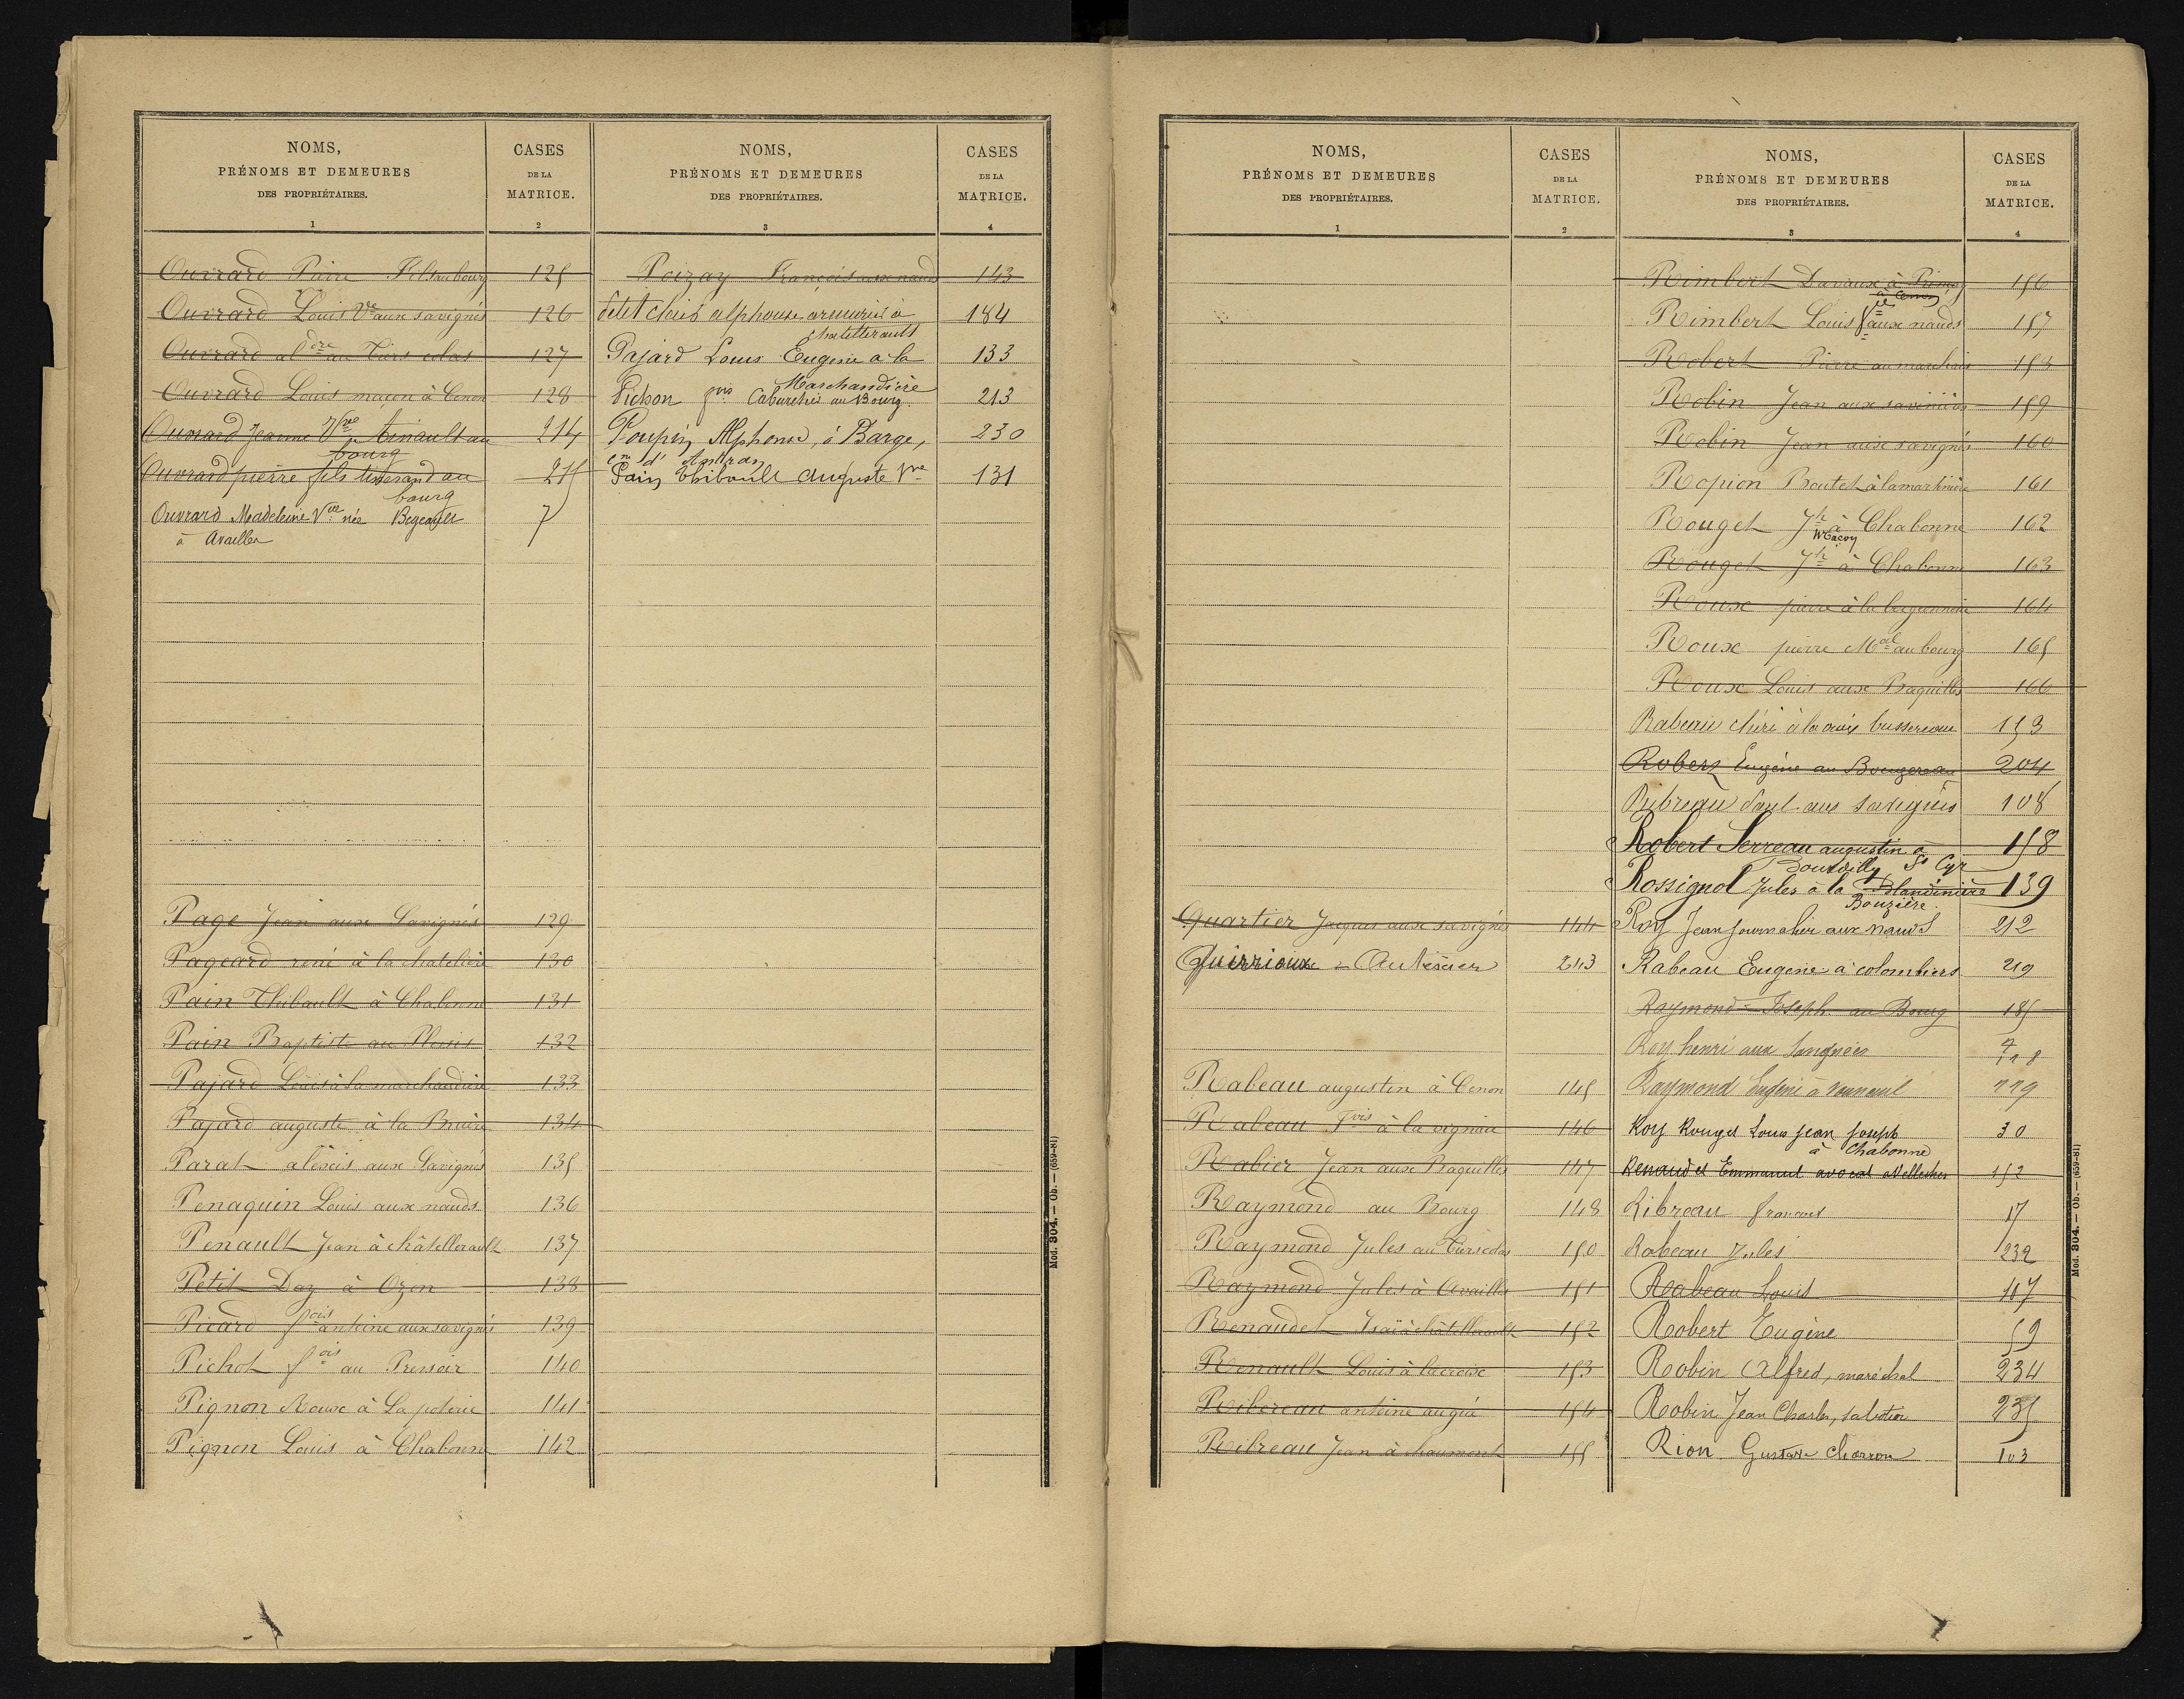 NOMS,
PRÉNOMS ET DEMEURES
DES PROPRIÉTAIRES.
1
CASES
DE LA
MATRICE.
2
Ouvrard Pierre au bourg 125
Ouvrard Louis Ve aux savignés 126
Ouvrard aldre au Tiers colas 127
Ouvrard Louis maçon à Cenon 128
Ouvrard Jeanne Vve Ainault au 214
bourg
Ouvrard pierre fils tisserand au 215
bourg
Ouvrard Madeleine Vve née 7
à Availles
Page Jean aux Savignés 129
Pageard réné à la chatelière 130
Pain Thibault à Chabonne 131
Pain Baptiste au 132
Pajard Louis à la marchandière 133
Pajard auguste à la Bruère 134
Parat alexis aux Savignés 135
Penaquin Louis aux nauds 136
Penault Jean à châtellerault 137
Petit Daz à Ozon 138
Picard fois antoine aux savignés 139
Pichot fois au Pressoir 140
Pignon Roux à La poterie 141
Pignon Louis à Chabonne 142
NOMS,
PRÉNOMS ET DEMEURES
DES PROPRIÉTAIRES.
3
CASES
DE LA
MATRICE.
4
Poizay François aux nauds 143
Petit alphonse armurier à 184
chatellerault
Pajard Louis Eugene a la 133
Marchandière
Pichon fois Cabaretier au Bourg. 213
Poupin Alphonse, à Barge, 230
cne d'Antran
Pain Thibault Auguste Vve 131
Mod. 304. — Ob. — (659-81)
NOMS,
PRÉNOMS ET DEMEURES
DES PROPRIÉTAIRES.
1
CASES
DE LA
MATRICE.
2
Quartier Jacques aux savignés 144
Quèrrioux 243
Rabeau augustin à Cenon 145
Rabeau fois à la vignau 146
Rabier Jean aux Braquilles 147
Raymond au Bourg 148
Raymond Jules au Tierscolas 150
Raymond Jules à Availles 151
Renaudet à châtellerault 152
Renault Louis à la croix 153
Ribereau antoine au gué 154
Ribreau Jean à chaumont 155
NOMS,
PRÉNOMS ET DEMEURES
DES PROPRIÉTAIRES.
3
CASES
DE LA
MATRICE.
4
Rimbert Davaux à 156
à Cenon
Rimbert Louis aux nauds 157
Robert Pierre au marchais 158
Robin Jean aux saviniers 159
Robin Jean aux savignés 160
Ropion Boutet à la martinière 161
Rouget Jh à Chabonne 162
Macon
Rouget Jh à Chabonne 163
Roux pierre à la 164
Roux pierre Mal au bourg 165
Roux Louis aux Braquilles 166
Rabeau chéri à la croix bussereau 153
Robert Eugène au Bougereau 204
Ribreau Paul aux savignés 108
Robert Serreau augustin à 158
St Cyr
Rossignol Jules à la Blandinière 139
Bouzière.
Roy Jean journalier aux nauds 212
Rabeau Eugene à colombiers 219
Raymond Joseph au Bourg 185
Roy henri aux Savignées 718
Raymond Eugène à Vouneuil 119
Roy Rouget Louis Jean Joseph 30
à Chabonne
Renaudet Emmanuel avocat 152
Ribreau francois 17
Rabeau Jules 232
Rabeau Louis 167
Robert Eugène 59
Robin Alfred, maréchal 234
Robin Jean Charles, sabotier 235
Rion Gustave charron 103
Mod. 304. — Ob. — (659-81)